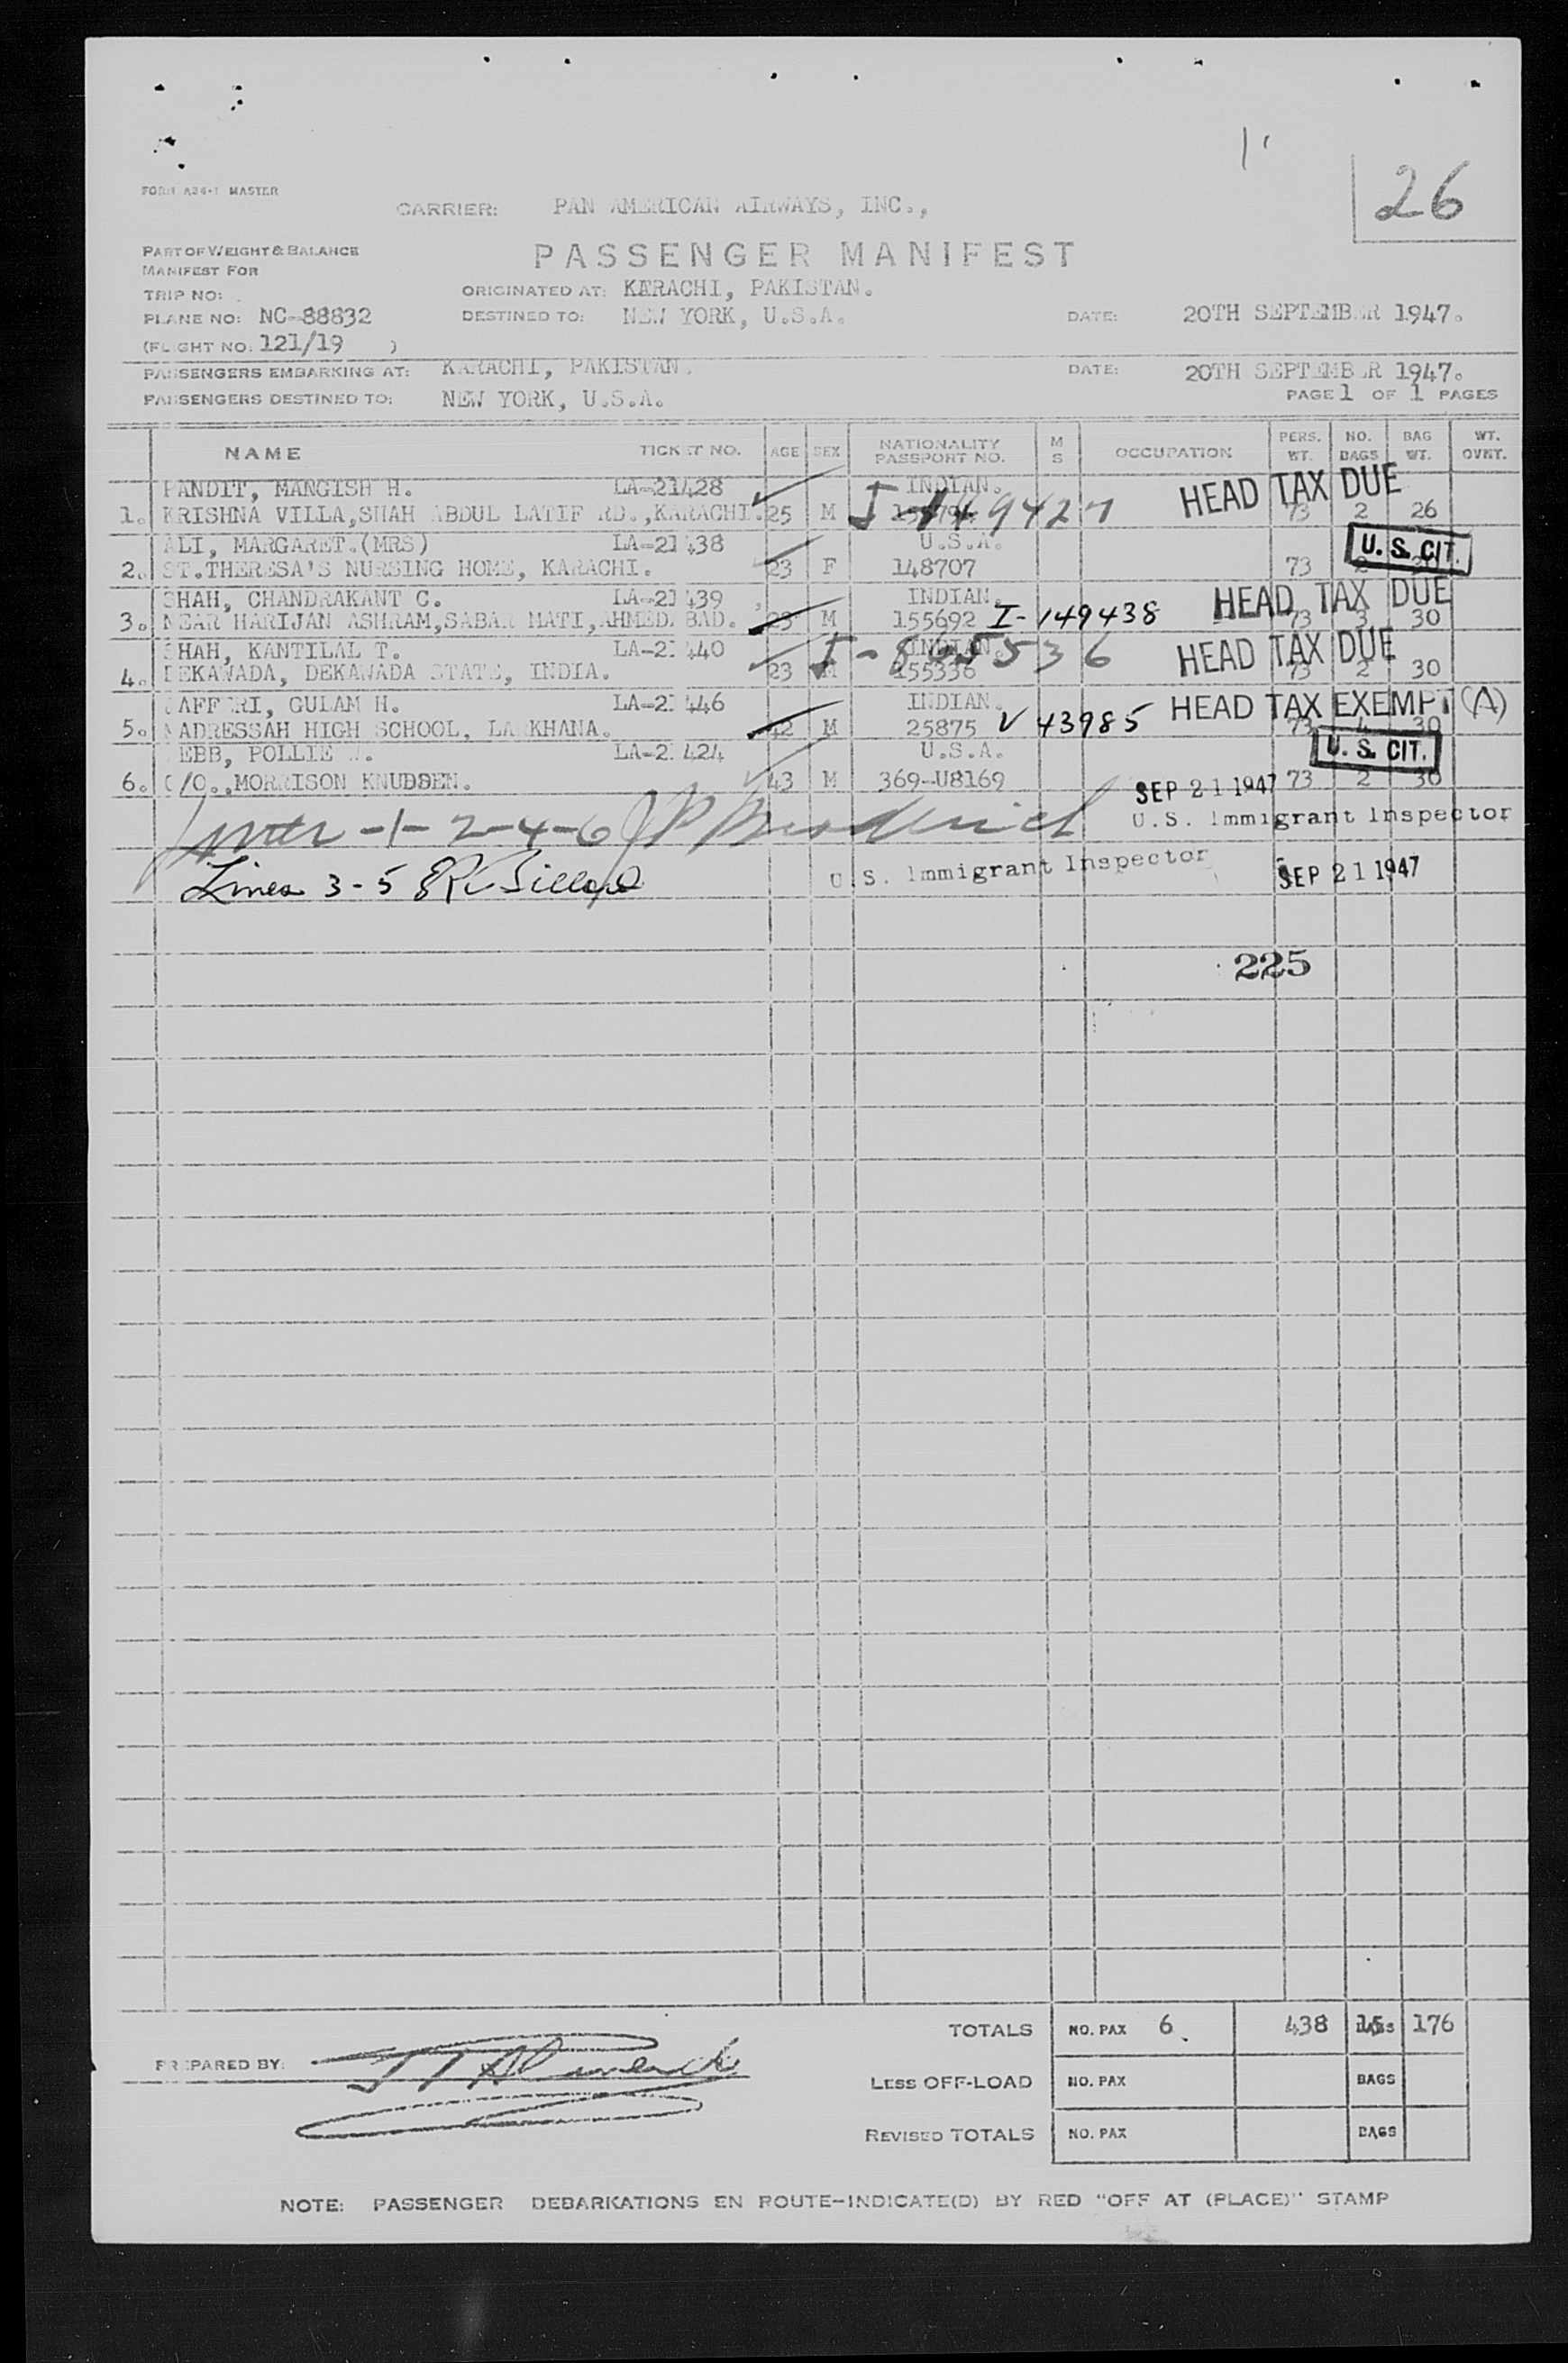 26
FORM A24-1 MASTER
CARRIER: PAN AMERICAN AIRWAYS, INC.,
PART OF WEIGHT & BALANCE
MANIFEST FOR
PASSENGER MANIFEST
TRIP NO:
ORIGINATED AT: KARACHI, PAKISTAN.
PLANE NO: NC-88832
DESTINED TO: NEW YORK, U.S.A.
DATE: 20TH SEPTEMBER 1947.
(FLIGHT NO: 121/19 )
PASSENGERS EMBARKING AT: KARACHI, PAKISTAN.
DATE: 20TH SEPTEMBER 1947.
PASSENGERS DESTINED TO: NEW YORK, U.S.A.
PAGE 1 OF 1 PAGES
NAME TICKET NO. AGE SEX NATIONALITY PASSPORT NO. M S OCCUPATION PERS. WT. NO. BAGS BAG WT. WT. OVRT.
PANDIT, MANGISH H. LA-21428 INDIAN. HEAD TAX DUE
1. KRISHNA VILLA,SHAH ABDUL LATIF RD.,KARACHI. 25 M I-149427 73 2 26
ALI, MARGARET.(MRS) LA-21438 U.S.A. U. S. CIT.
2. ST.THERESA'S NURSING HOME, KARACHI. 23 F 148707 73
SHAH, CHANDRAKANT C. LA-21439 INDIAN. HEAD TAX DUE
3. NEAR HARIJAN ASHRAM,SABAR MATI,AHMEDABAD. 23 M 155692 I-149438 73 3 30
SHAH, KANTILAL T. LA-21440 INDIAN. HEAD TAX DUE
4. DEKAWADA, DEKAWADA STATE, INDIA. 23 M 155336 73 2 30
JAFFERI, GULAM H. LA-21446 INDIAN. HEAD TAX EXEMPT (A)
5. MADRESSAH HIGH SCHOOL, LARKHANA. 42 M 25875 V 43985 73 4 30
WEBB, POLLIE LA-21424 U.S.A. U. S. CIT.
6. C/O.,MORRISON KNUDSEN. 43 M 369-U8169 73 2 30
SEP 21 1947
U.S. Immigrant Inspector
-1-2-4-6
Lines 3-5
U.S. Immigrant Inspector SEP 21 1947
225
TOTALS NO. PAX 6 438 15 BAGS 176
PREPARED BY:
LESS OFF-LOAD NO. PAX BAGS
REVISED TOTALS NO. PAX BAGS
NOTE: PASSENGER DEBARKATIONS EN ROUTE-INDICATE(D) BY RED "OFF AT (PLACE)" STAMP